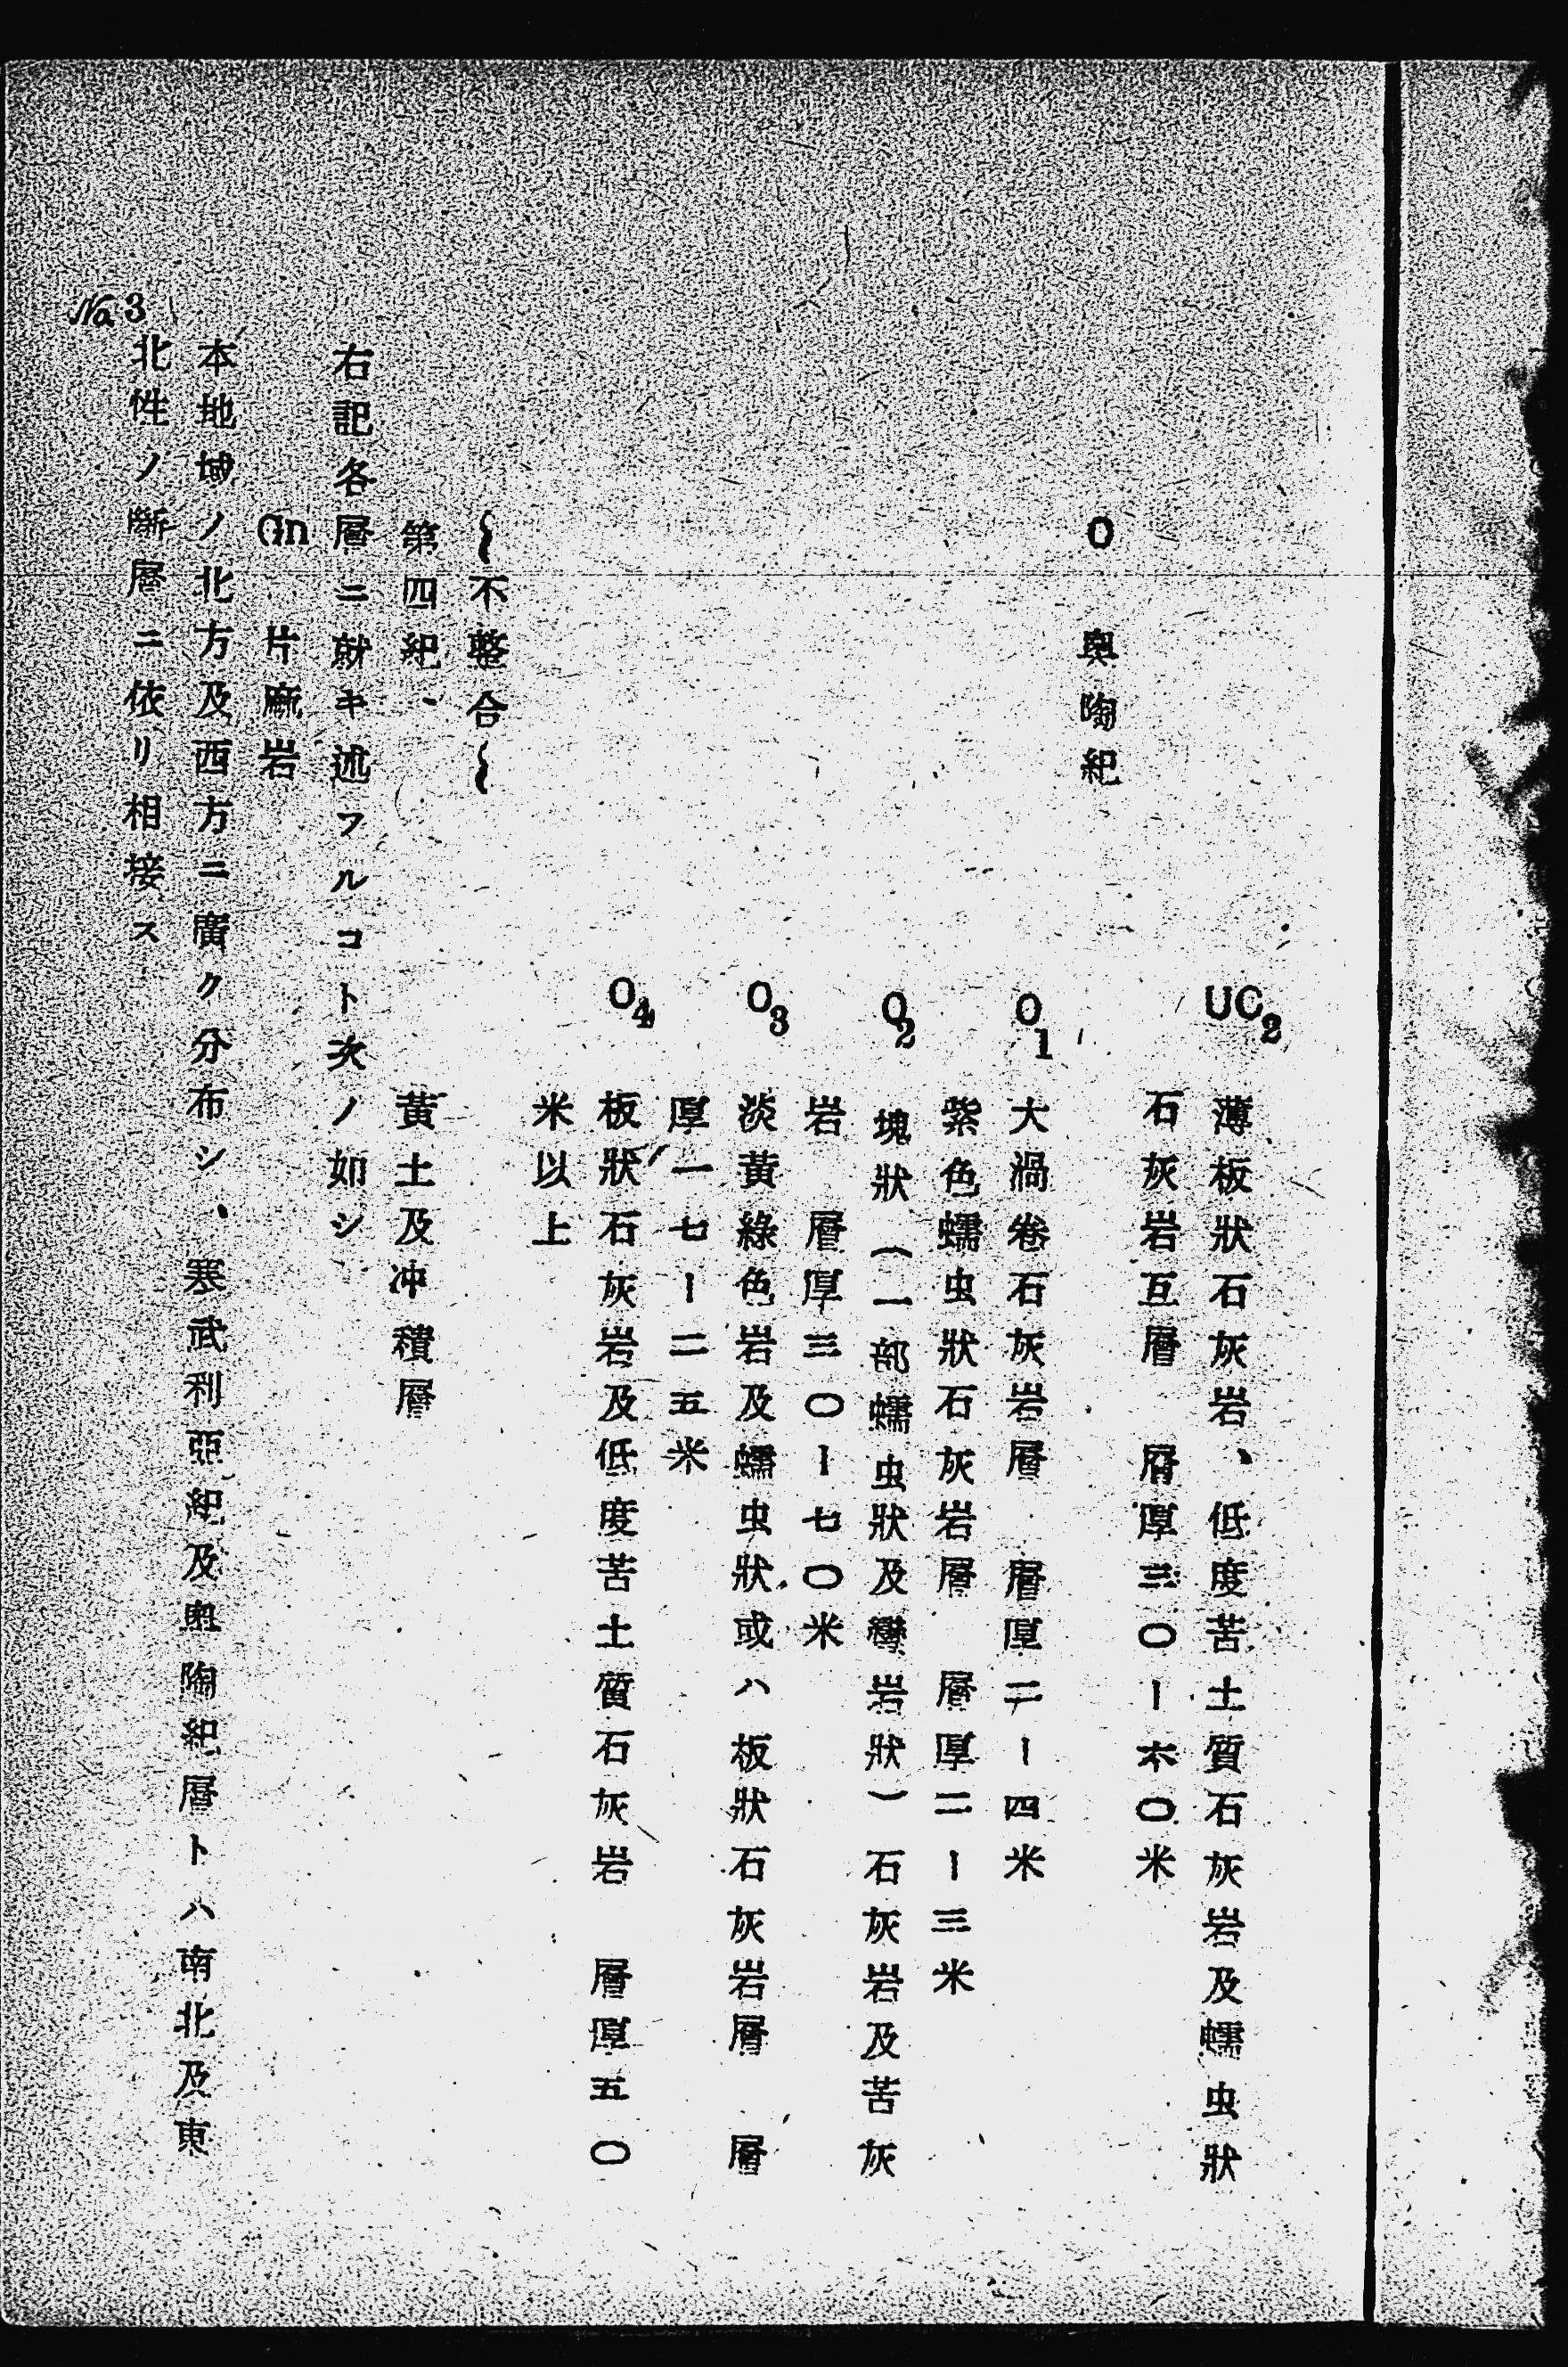 UC2 薄板狀石灰岩、低度苦土質石灰岩及蠕虫狀
石灰岩互層 層厚三〇ー六〇米
O 奥陶紀
O1 大渦卷石灰岩層 層厚二ー四米
紫色蠕虫狀石灰岩層 層厚二ー三米
O2 塊狀(一部蠕虫狀及灣岩狀)石灰岩及苦灰
岩 層厚三〇ー七〇米
O3 淡黃綠色岩及蠕虫狀或ハ板狀石灰岩層 層
厚一七ー二五米
O4 板狀石灰岩及低度苦土質石灰岩 層厚五〇
米以上
~不整合~
第四紀、 黃土及冲積層
右記各層ニ就キ述フルコト次ノ如シ
Gn 片麻岩
本地域ノ北方及西方ニ廣ク分布シ、寒武利亞紀及奥陶紀層トハ南北及東
北性ノ斷層ニ依リ相接ス
No 3